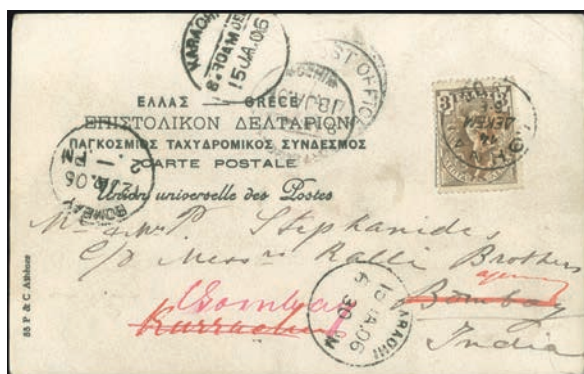 KARACHI
8.30AM DE
15JA.06
POST OFFICE
ΕΛΛΑΣ — GRECE
ΕΠΙΣΤΟΛΙΚΟΝ ΔΕΛΤΑΡΙΟΝ
ΠΑΓΚΟΣΜΙΟΣ ΤΑΧΥΔΡΟΜΙΚΟΣ ΣΥΝΔΕΣΜΟΣ
CARTE POSTALE
Union universelle des Postes
3
14
ΔΕΚΕΜ
BOMBAY
JA.06
P. Stephanides
c/o Messrs Ralli Brothers
agency
Bombay
Bombay
Kurrachee
India
KARACHI
15JA.06
6 30 PM
55 P & C Athènes